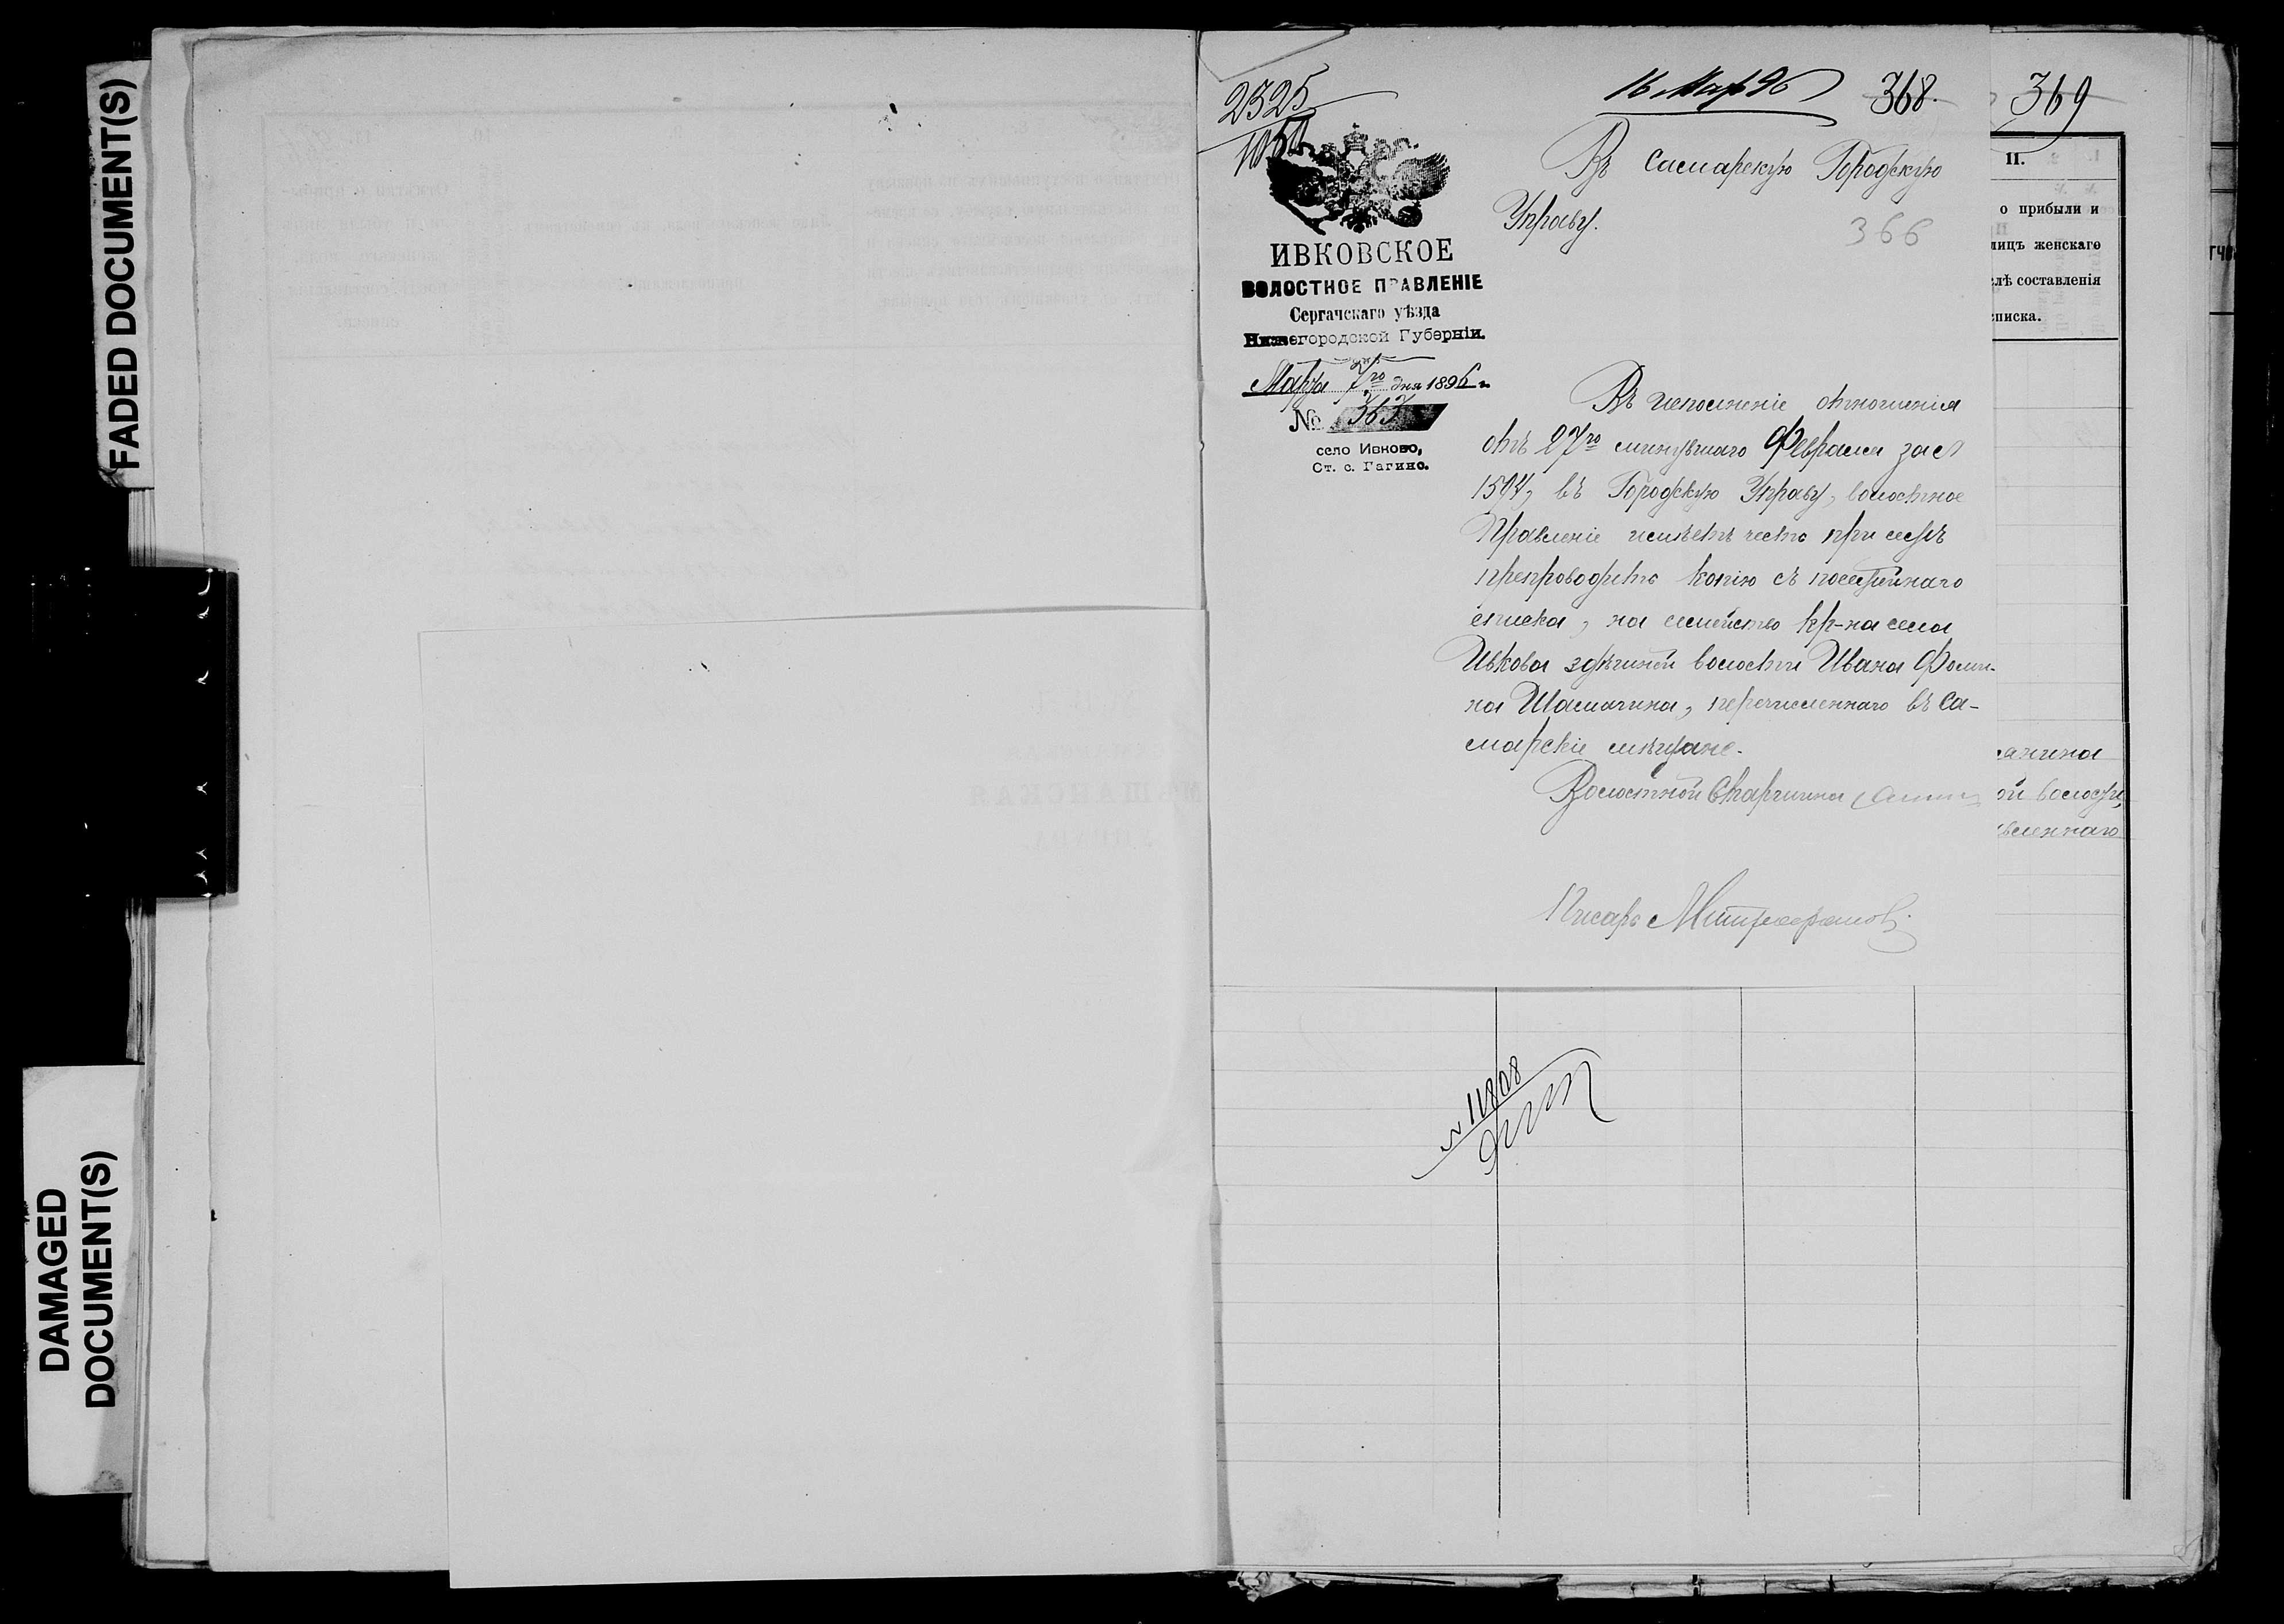 FADED DOCUMENT(S)
DAMAGED
DOCUMENT(S)
2325
1060
16 Мар 96
368.
369
Въ Самарскую Городскую
Управу.
366
ИВКОВСКОЕ
ВОЛОСТНОЕ ПРАВЛЕНІЕ
Сергачскаго уѣзда
Нижегородской Губерніи.
Марта 7го дня 1896 г.
№ 363
село Ивково,
Ст. с. Гагино.
Въ исполненіе отношенія
отъ 27го минувшаго Февраля за №
1594, въ Городскую Управу, волостное
Правленіе имѣетъ честь при семъ
препроводить копію съ посемейнаго
списка, на семейство кр-на села
Ивкова здѣшней волости Ивана Фоми-
на Шамагина, перечисленнаго въ Са-
марскіе мѣщане.
Волостной Старшина
Писарь Митрофанов
11.
о прибыли и
лицъ женскаго
слѣ составленія
списка.
ой волости,
вленнаго
№ 11808